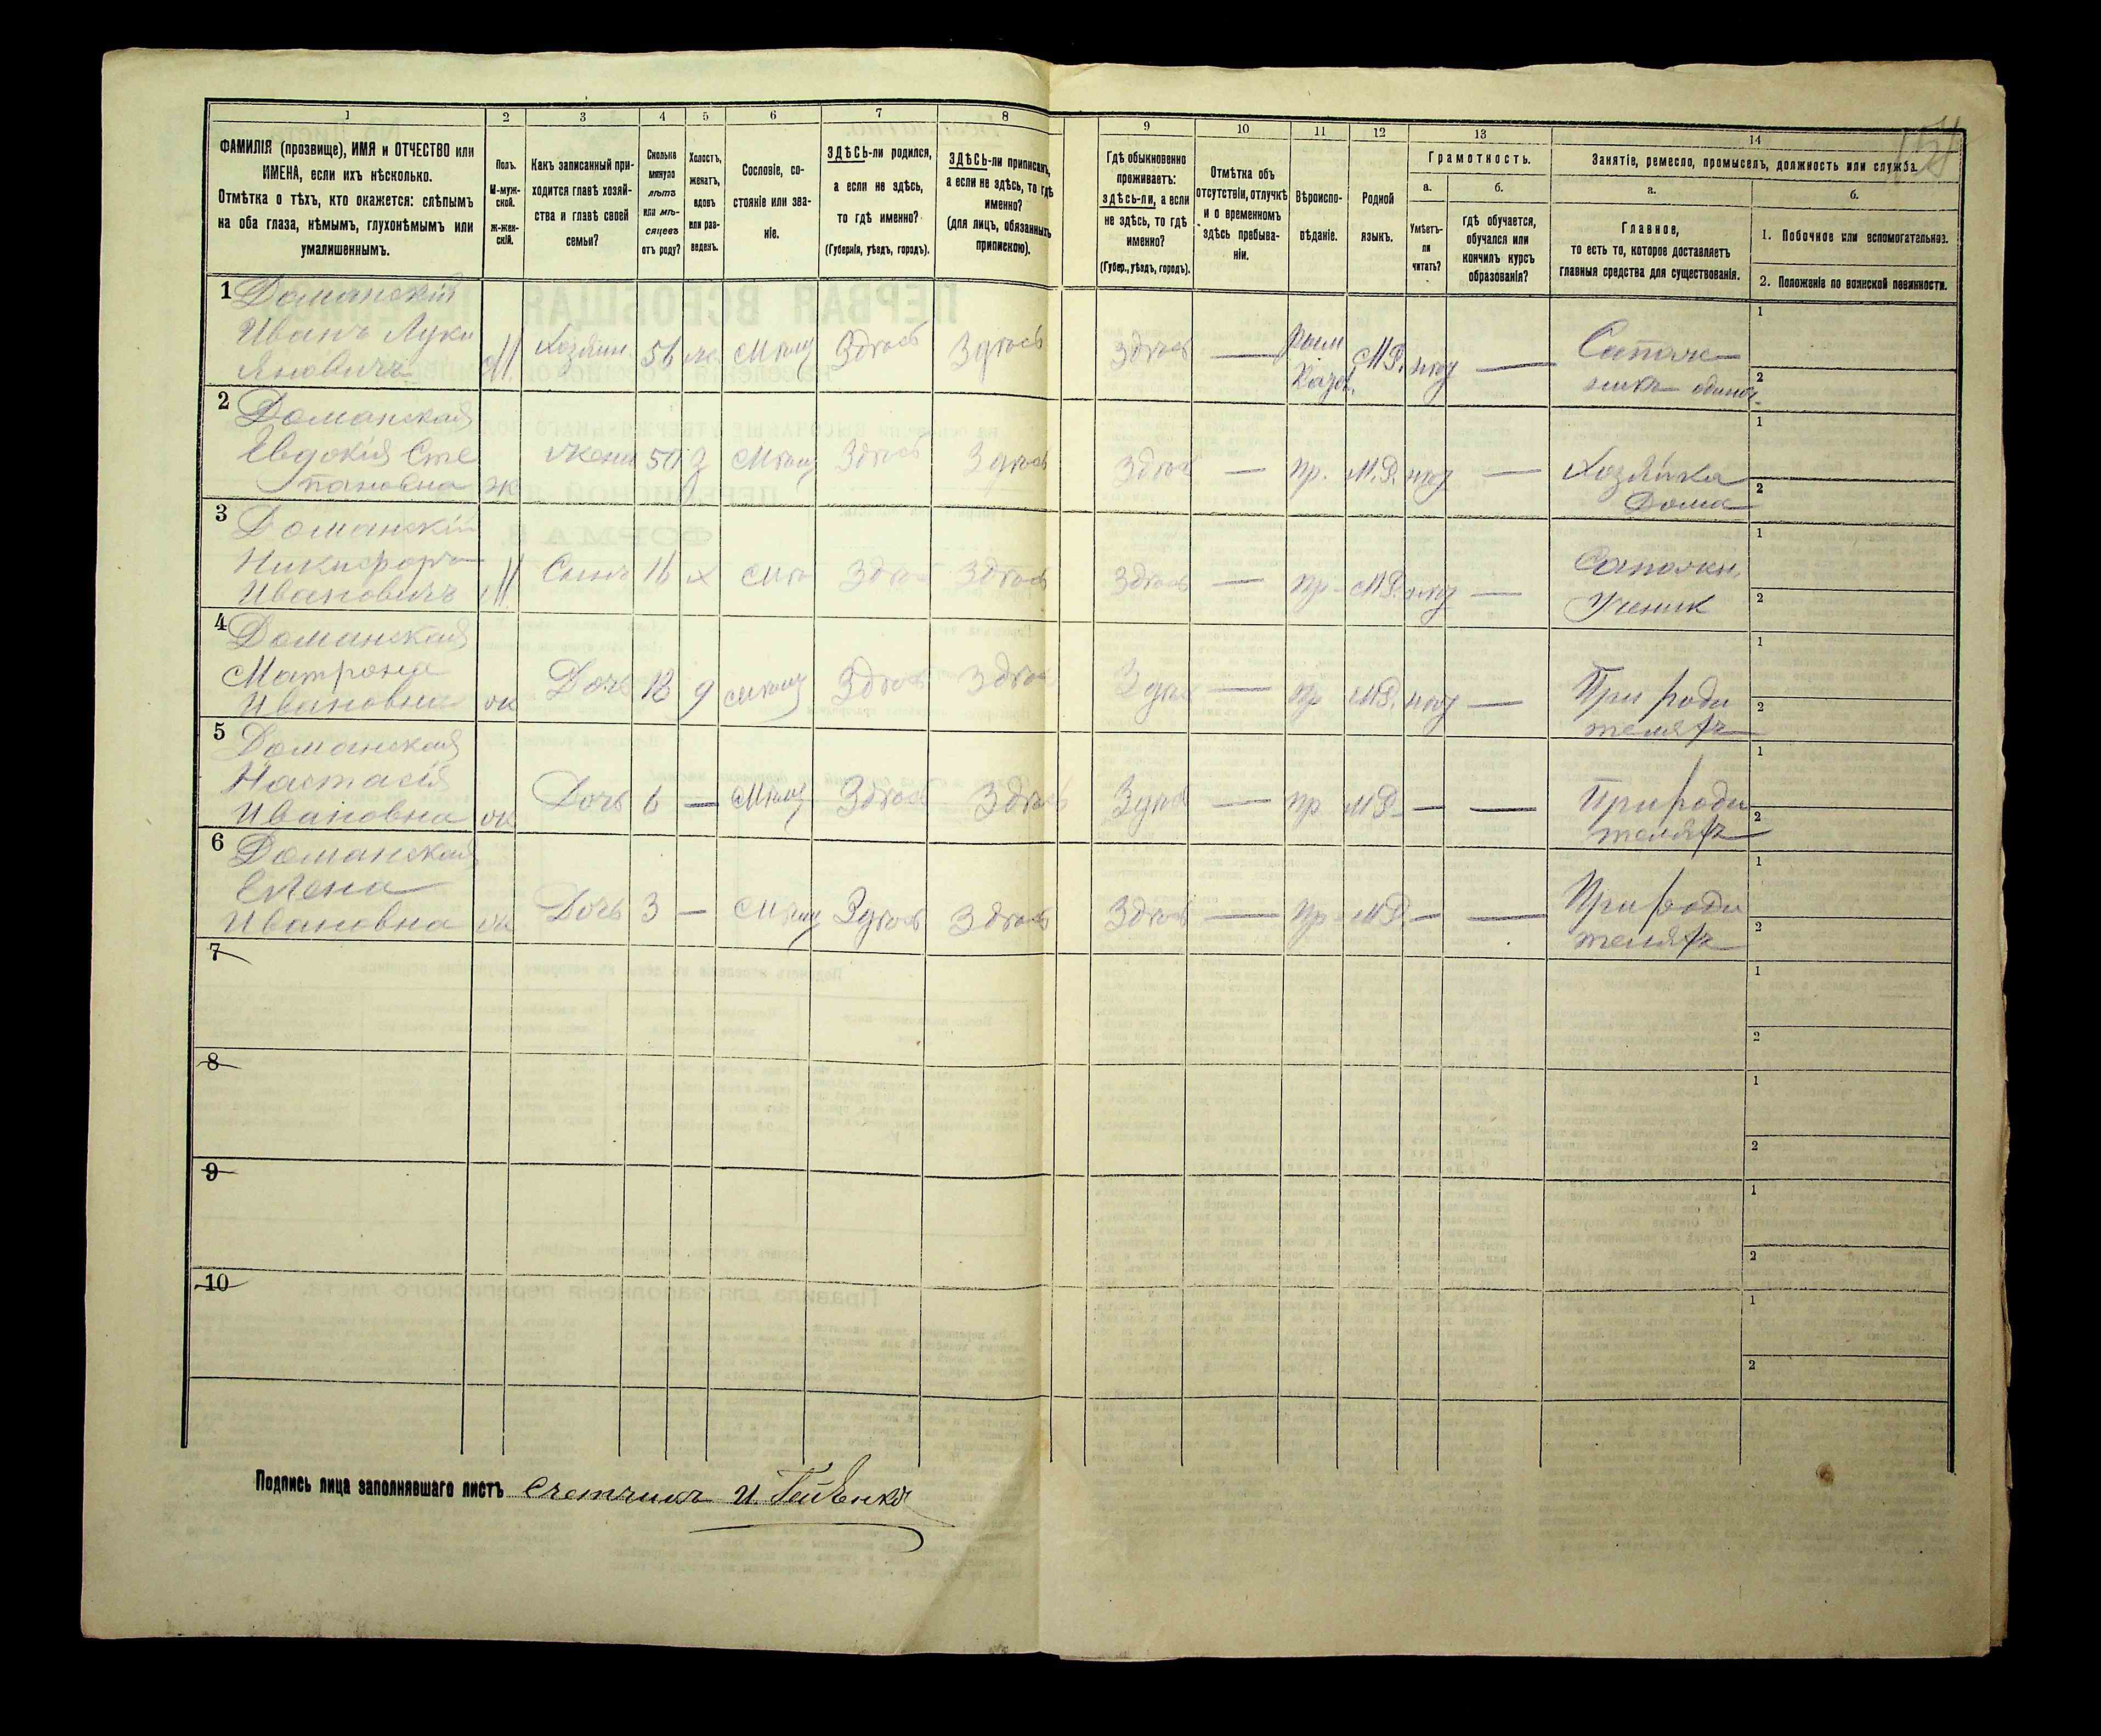 1
2
3
4
5
6
7
8
9
10
11
12
13
14
ФАМИЛІЯ (прозвище), ИМЯ и ОТЧЕСТВО или
ИМЕНА, если ихъ нѣсколько.
Отмѣтка о тѣхъ, кто окажется: слѣпымъ
на оба глаза, нѣмымъ, глухонѣмымъ или
умалишеннымъ.
Полъ.
М-муж-
ской.
ж-жен-
скій.
Какъ записанный при-
ходится главѣ хозяй-
ства и главѣ своей
семьи?
Сколько
минуло
лѣтъ
или мѣ-
сяцевъ
отъ роду?
Холостъ,
женатъ,
вдовъ
или раз-
веденъ.
Сословіе, со-
стояніе или зва-
ніе.
ЗДѢСЬ-ли родился,
а если не здѣсь,
то гдѣ именно?
(Губернія, уѣздъ, городъ).
ЗДѢСЬ-ли приписанъ,
а если не здѣсь, то гдѣ
именно?
(для лицъ, обязанныхъ
припискою).
Гдѣ обыкновенно
проживаетъ:
здѣсь-ли, а если
не здѣсь, то гдѣ
именно?
(Губер., уѣздъ, городъ).
Отмѣтка объ
отсутствіи, отлучкѣ
и о временномъ
здѣсь пребыва-
ніи.
Вѣроиспо-
вѣданіе.
Родной
языкъ.
Грамотность.
а.
Умѣетъ-
ли
читать?
б.
Гдѣ обучается,
обучался или
кончилъ курсъ
образованія?
Занятіе, ремесло, промыселъ, должность или служба.
а.
Главное,
то есть то, которое доставляетъ
главныя средства для существованія.
б.
1. Побочное или вспомогательное.
2. Положеніе по воинской повинности.
1 Доманскій
Иванъ Луки
Яновичъ М. Хозяин. 56 ж. Мѣщ Здѣсь Здѣсь Здѣсь — Рим Като. М.Р. нѣт — Сапож
никъ
1
2
2 Доманская
Евдокія Сте
пановна ж Жена 50 З Мѣщ Здѣсь Здѣсь Здѣсь — пр. М.Р. нѣт — Хозяйка
Дома
1
2
3 Доманскій
Никифоръ
Ивановичъ М Сынъ 16 х Мѣ Здѣсь Здѣсь Здѣсь — пр М.Р. нѣт — Сапожн.
Ученик
1
2
4 Доманская
Матрона
Ивановна ж Дочь Мѣщ Здѣсь Здѣсь Здѣсь — пр М.Р. нѣт — При роди
теляхъ
1
2
5 Доманская
Настасія
Ивановна ж Дочь 6 — Мѣщ Здѣсь Здѣсь Здѣсь — пр М.Р. — — При роди
теляхъ
1
2
6 Доманская
Елена
Ивановна ж Дочь 3 — Мѣщ Здѣсь Здѣсь Здѣсь — пр М.Р. — — При роди
теляхъ
1
2
7
1
2
8
1
2
9
1
2
10
1
2
Подпись лица заполнявшаго листъ Счетчикъ И.